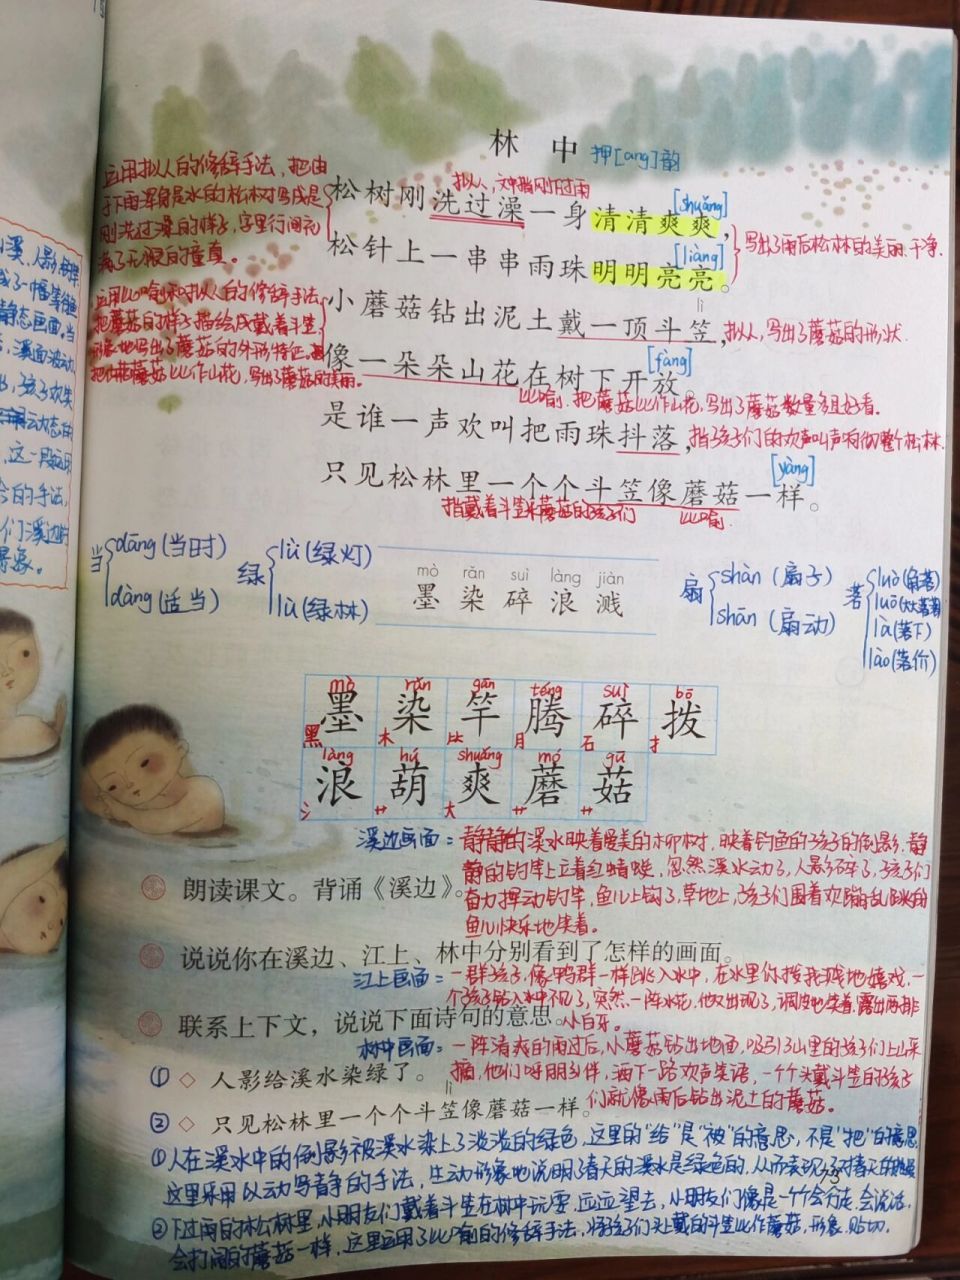 林 中 押[ang]韵
运用拟人的修辞手法，把由
于下雨浑身是水的松树写成是
刚洗过澡的样子，字里行间充
满了无限的童真。
拟人，文中指刚下过雨
[shuǎng]
松树刚洗过澡一身清清爽爽，
[liàng]
松针上一串串雨珠明明亮亮。
写出了雨后松林的美丽、干净。
运用比喻和拟人的修辞手法，
把蘑菇的样子描绘成戴着斗笠，
形象地写出了蘑菇的外形特征，
把蘑菇比作山花，写出了蘑菇的美丽。
lì
小蘑菇钻出泥土戴一顶斗笠，
拟人，写出了蘑菇的形状.
[fàng]
像一朵朵山花在树下开放。
比喻，把蘑菇比作山花，写出了蘑菇数量多且好看。
是谁一声欢叫把雨珠抖落，
指孩子们的欢声叫声响彻整个松林.
[yàng]
只见松林里一个个斗笠像蘑菇一样。
指戴着斗笠采蘑菇的孩子们 比喻.
当 dāng(当时)
dàng(适当)
绿 lǜ(绿灯)
lù(绿林)
mò rǎn suì làng jiàn
墨 染 碎 浪 溅
扇 shàn (扇子)
shān (扇动)
落 luò(角落)
luō(大大落落)
là(落下)
lào(落价)
mò rǎn gān téng suì bō
墨 染 竿 腾 碎 拨
黑 木 月 石 扌
làng hú shuǎng mó gū
浪 葫 爽 蘑 菇
氵 艹 大 艹 艹
溪边画面：静静的溪水映着美的柳树，映着钓鱼的孩子的倒影.静
静的钓竿上立着红蜻蜓，忽然溪水动了，人影碎了，孩子们
奋力挥动钓竿，鱼儿上钩了，草地上，孩子们围着欢蹦乱跳的
鱼儿快乐地笑着。
朗读课文。背诵《溪边》。
说说你在溪边、江上、林中分别看到了怎样的画面。
江上画面：一群孩子，像鸭群一样跳入水中，在水里你拨我溅地嬉戏，一
个孩子钻入水中不见了，突然一阵水花，他又出现了，调皮地笑着，露出两排
小白牙。
联系上下文，说说下面诗句的意思。
林中画面：一阵清爽的雨过后，小蘑菇钻出地面，吸引了山里的孩子们上山采
摘，他们呼朋引伴，洒下一路欢声笑语，一个个头戴斗笠的孩子
们就像雨后钻出泥土的蘑菇。
① ◇ 人影给溪水染绿了。
lì
② ◇ 只见松林里一个个斗笠像蘑菇一样。
①人在溪水中的倒影被溪水染上了淡淡的绿色，这里的"给"是"被"的意思，不是"把"的意思
这里采用以动写静的手法，生动形象地说明了春天的溪水是绿色的，从而表现了对春天的
②下过雨的松树里，小朋友们戴着斗笠在林中玩耍，远远望去，小朋友们像是一个个会行走，会说话，
会打闹的蘑菇一样，这里运用了比喻的修辞手法，将孩子们头上戴的斗笠比作蘑菇，形象、贴切.
73